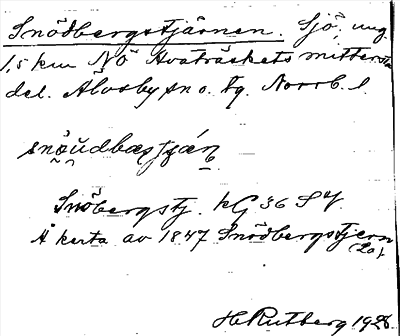 Snödbergstjärnen. Sjö, ung.
1,5 km NÖ Hvaträskets mittersta
del. Älvsby sn o. tg. Norrb. l.
snö̯ŭdbæsṭjǽn
Snöbergstj. kG 36 SV
Å karta av 1847 Snödbergstjern
H Rutberg 1928.